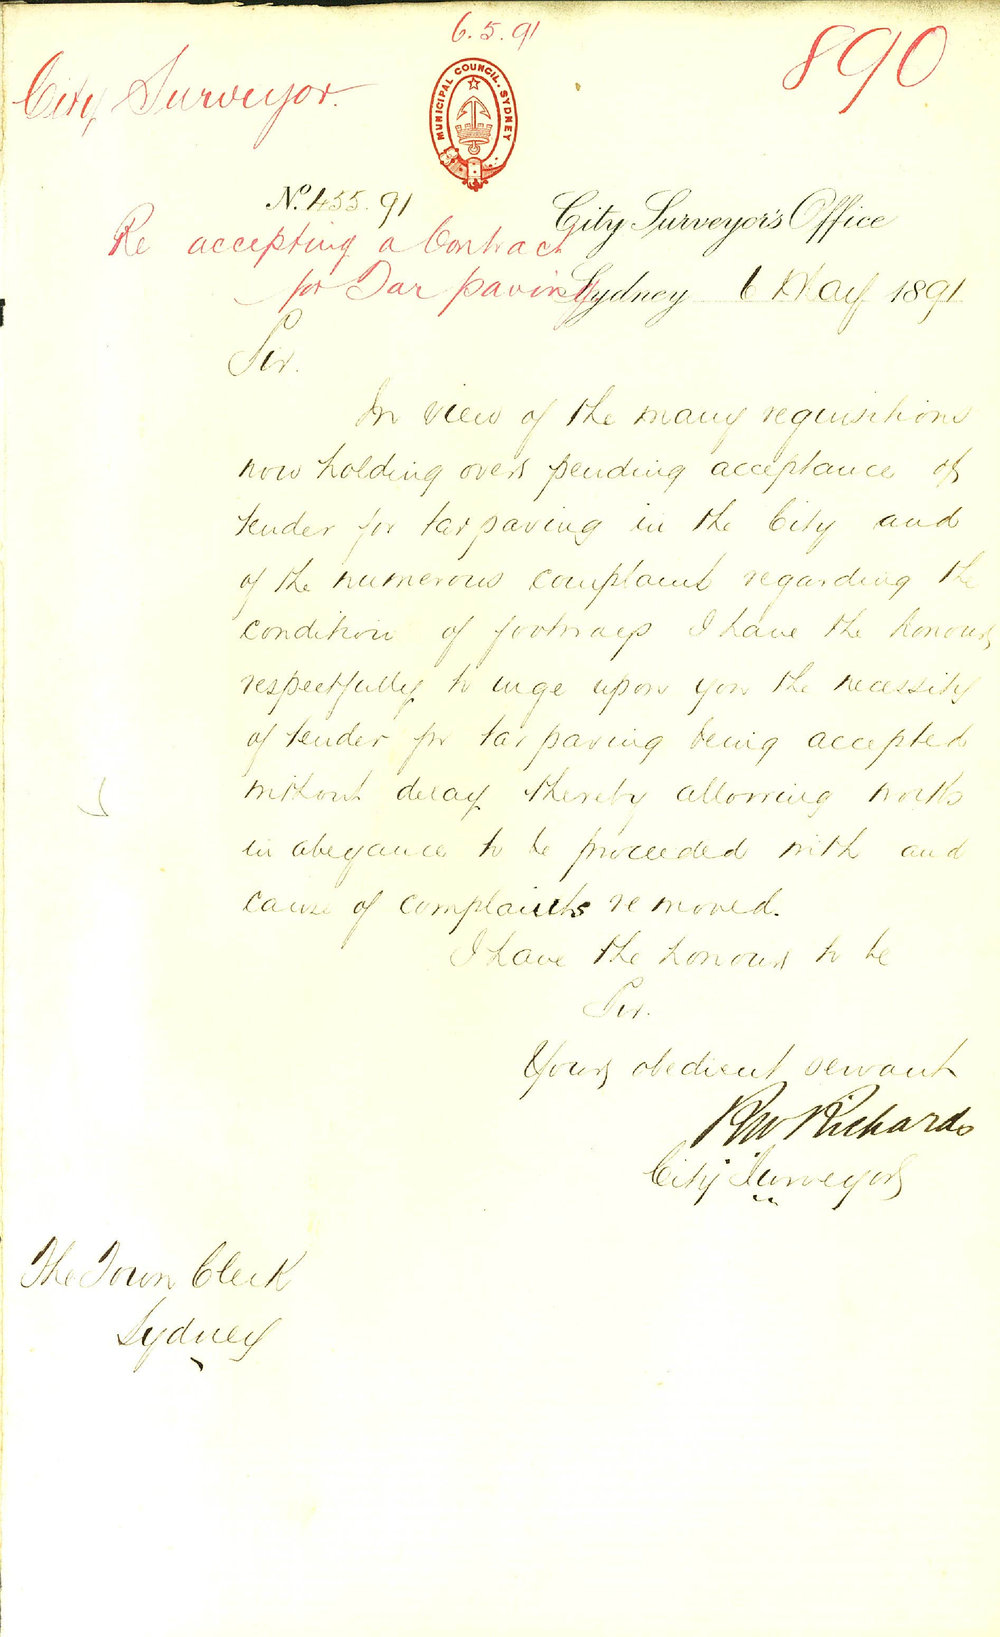 6.5.91
890
City Surveyor.
MUNICIPAL COUNCIL. SYDNEY
No. 455.91
City Surveyor's Office
Re accepting a Contract
for Tar paving
Sydney 6 May 1891
Sir.
In view of the many requisitions
now holding over pending acceptance of
tender for tar paving in the City and
of the numerous complaint regarding the
condition of footways I have the honour
respectfully to urge upon you the necessity
of tender for tar paving being accepted
without delay thereby allowing works
in abeyance to be proceeded with and
cause of complaints removed.
I have the honour to be
Sir.
Your obedient servant
RW Richards
City Surveyor
The Town Clerk
Sydney